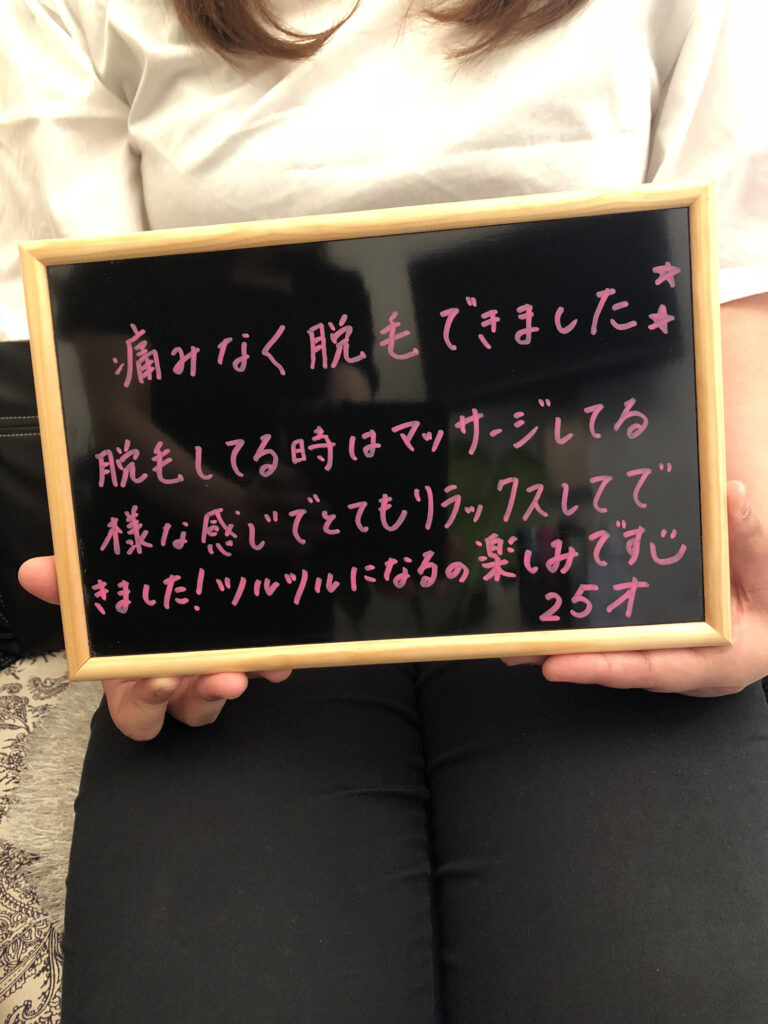 痛みなく脱毛できました☆☆
脱毛してる時はマッサージしてる
様な感じでとてもリラックスしてで
きました!ツルツルになるの楽しみです
25才